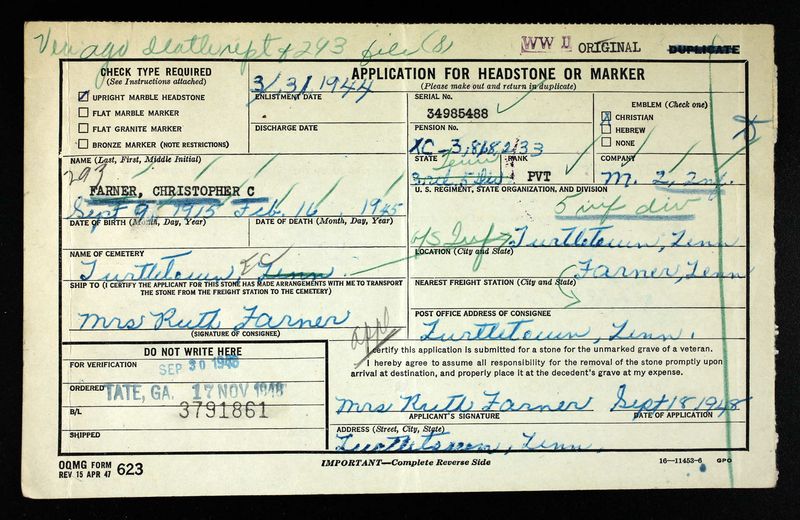 293 file (s)
WW II ORIGINAL DUPLICATE
CHECK TYPE REQUIRED
(See Instructions attached)
UPRIGHT MARBLE HEADSTONE
FLAT MARBLE MARKER
FLAT GRANITE MARKER
BRONZE MARKER (NOTE RESTRICTIONS)
3/31/1944
ENLISTMENT DATE
DISCHARGE DATE
APPLICATION FOR HEADSTONE OR MARKER
(Please make out and return in duplicate)
SERIAL No.
34985488
PENSION No.
XC-3,868,233
EMBLEM (Check one)
X CHRISTIAN
HEBREW
NONE
NAME (Last, First, Middle Initial)
293
FARNER, CHRISTOPHER C
STATE Tenn RANK
PVT
COMPANY
M. 2, Inf.
U. S. REGIMENT, STATE ORGANIZATION, AND DIVISION
5 inf div
Sept 9, 1915 Feb. 16, 1945
DATE OF BIRTH (Month, Day, Year) DATE OF DEATH (Month, Day, Year)
NAME OF CEMETERY
Turtletown, Tenn.
o/S Turtletown, Tenn
LOCATION (City and State)
Farner, Tenn
NEAREST FREIGHT STATION (City and State)
SHIP TO (I CERTIFY THE APPLICANT FOR THIS STONE HAS MADE ARRANGEMENTS WITH ME TO TRANSPORT
THE STONE FROM THE FREIGHT STATION TO THE CEMETERY)
Mrs Ruth Farner
(SIGNATURE OF CONSIGNEE)
POST OFFICE ADDRESS OF CONSIGNEE
Turtletown, Tenn.
DO NOT WRITE HERE
FOR VERIFICATION SEP 30 1948
ORDERED TATE, GA. 17 NOV 1948
B/L 3791861
SHIPPED
appl
I certify this application is submitted for a stone for the unmarked grave of a veteran.
I hereby agree to assume all responsibility for the removal of the stone promptly upon
arrival at destination, and properly place it at the decedent's grave at my expense.
Mrs Ruth Farner Sept 18 1948
APPLICANT'S SIGNATURE DATE OF APPLICATION
ADDRESS (Street, City, State)
Turtletown, Tenn.
OQMG FORM 623
REV 15 APR 47
IMPORTANT—Complete Reverse Side
16—11453-6 GPO